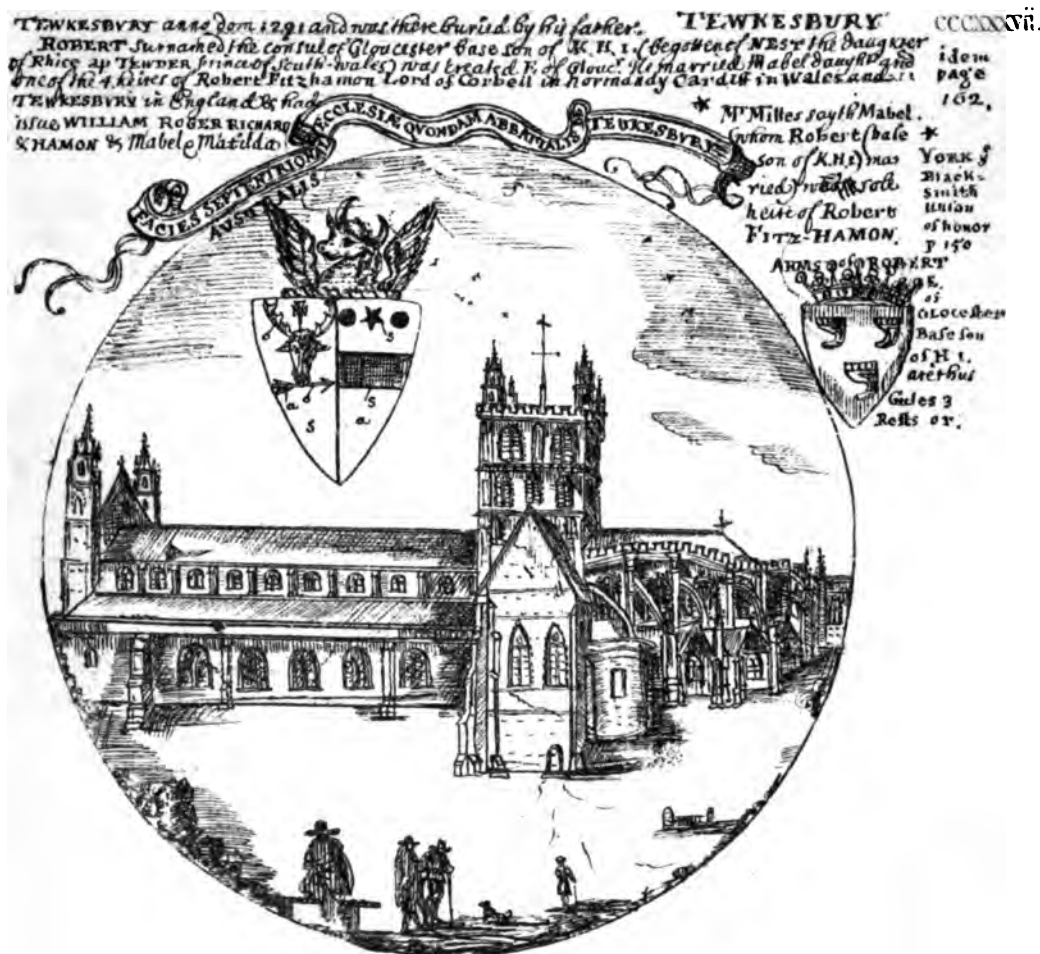 TEWKESBURY
CCCXXXvii.
TEWKESBURY anno dom 1291 and was there buried by his father.
ROBERT surnamed the consul of Gloucester base son of K. H. 1. (begotten of NEST the daughter
of Rhice ap TEWDER prince of South-wales) was created E. of Glouc. He married Mabel daught. and
one of the 4 heires of Robert Fitzhamon Lord of Corbeil in Normandy Cardiff in Wales and
TEWKESBURY in England & had
issue WILLIAM ROGER RICHARD
& HAMON & Mabel & Matilda
idem
page
162.
FACIES SEPTENTRIONAL ECCLESIÆ QVONDAM ABBATIALIS TEUKESBURY
AUSTRALIS
* Mr Milles sayth Mabel.
whom Robert (base
son of K.H.1) mar
ried was sole
heire of Robert
FITZ-HAMON.
*
YORK ye
Black-
Smith
Union
of honor
p 150
ARMS of ROBERT
of
Glocester
Base son
of H 1.
are thus
Gules 3
Rests or.
ó
s
a ó
s
s
a